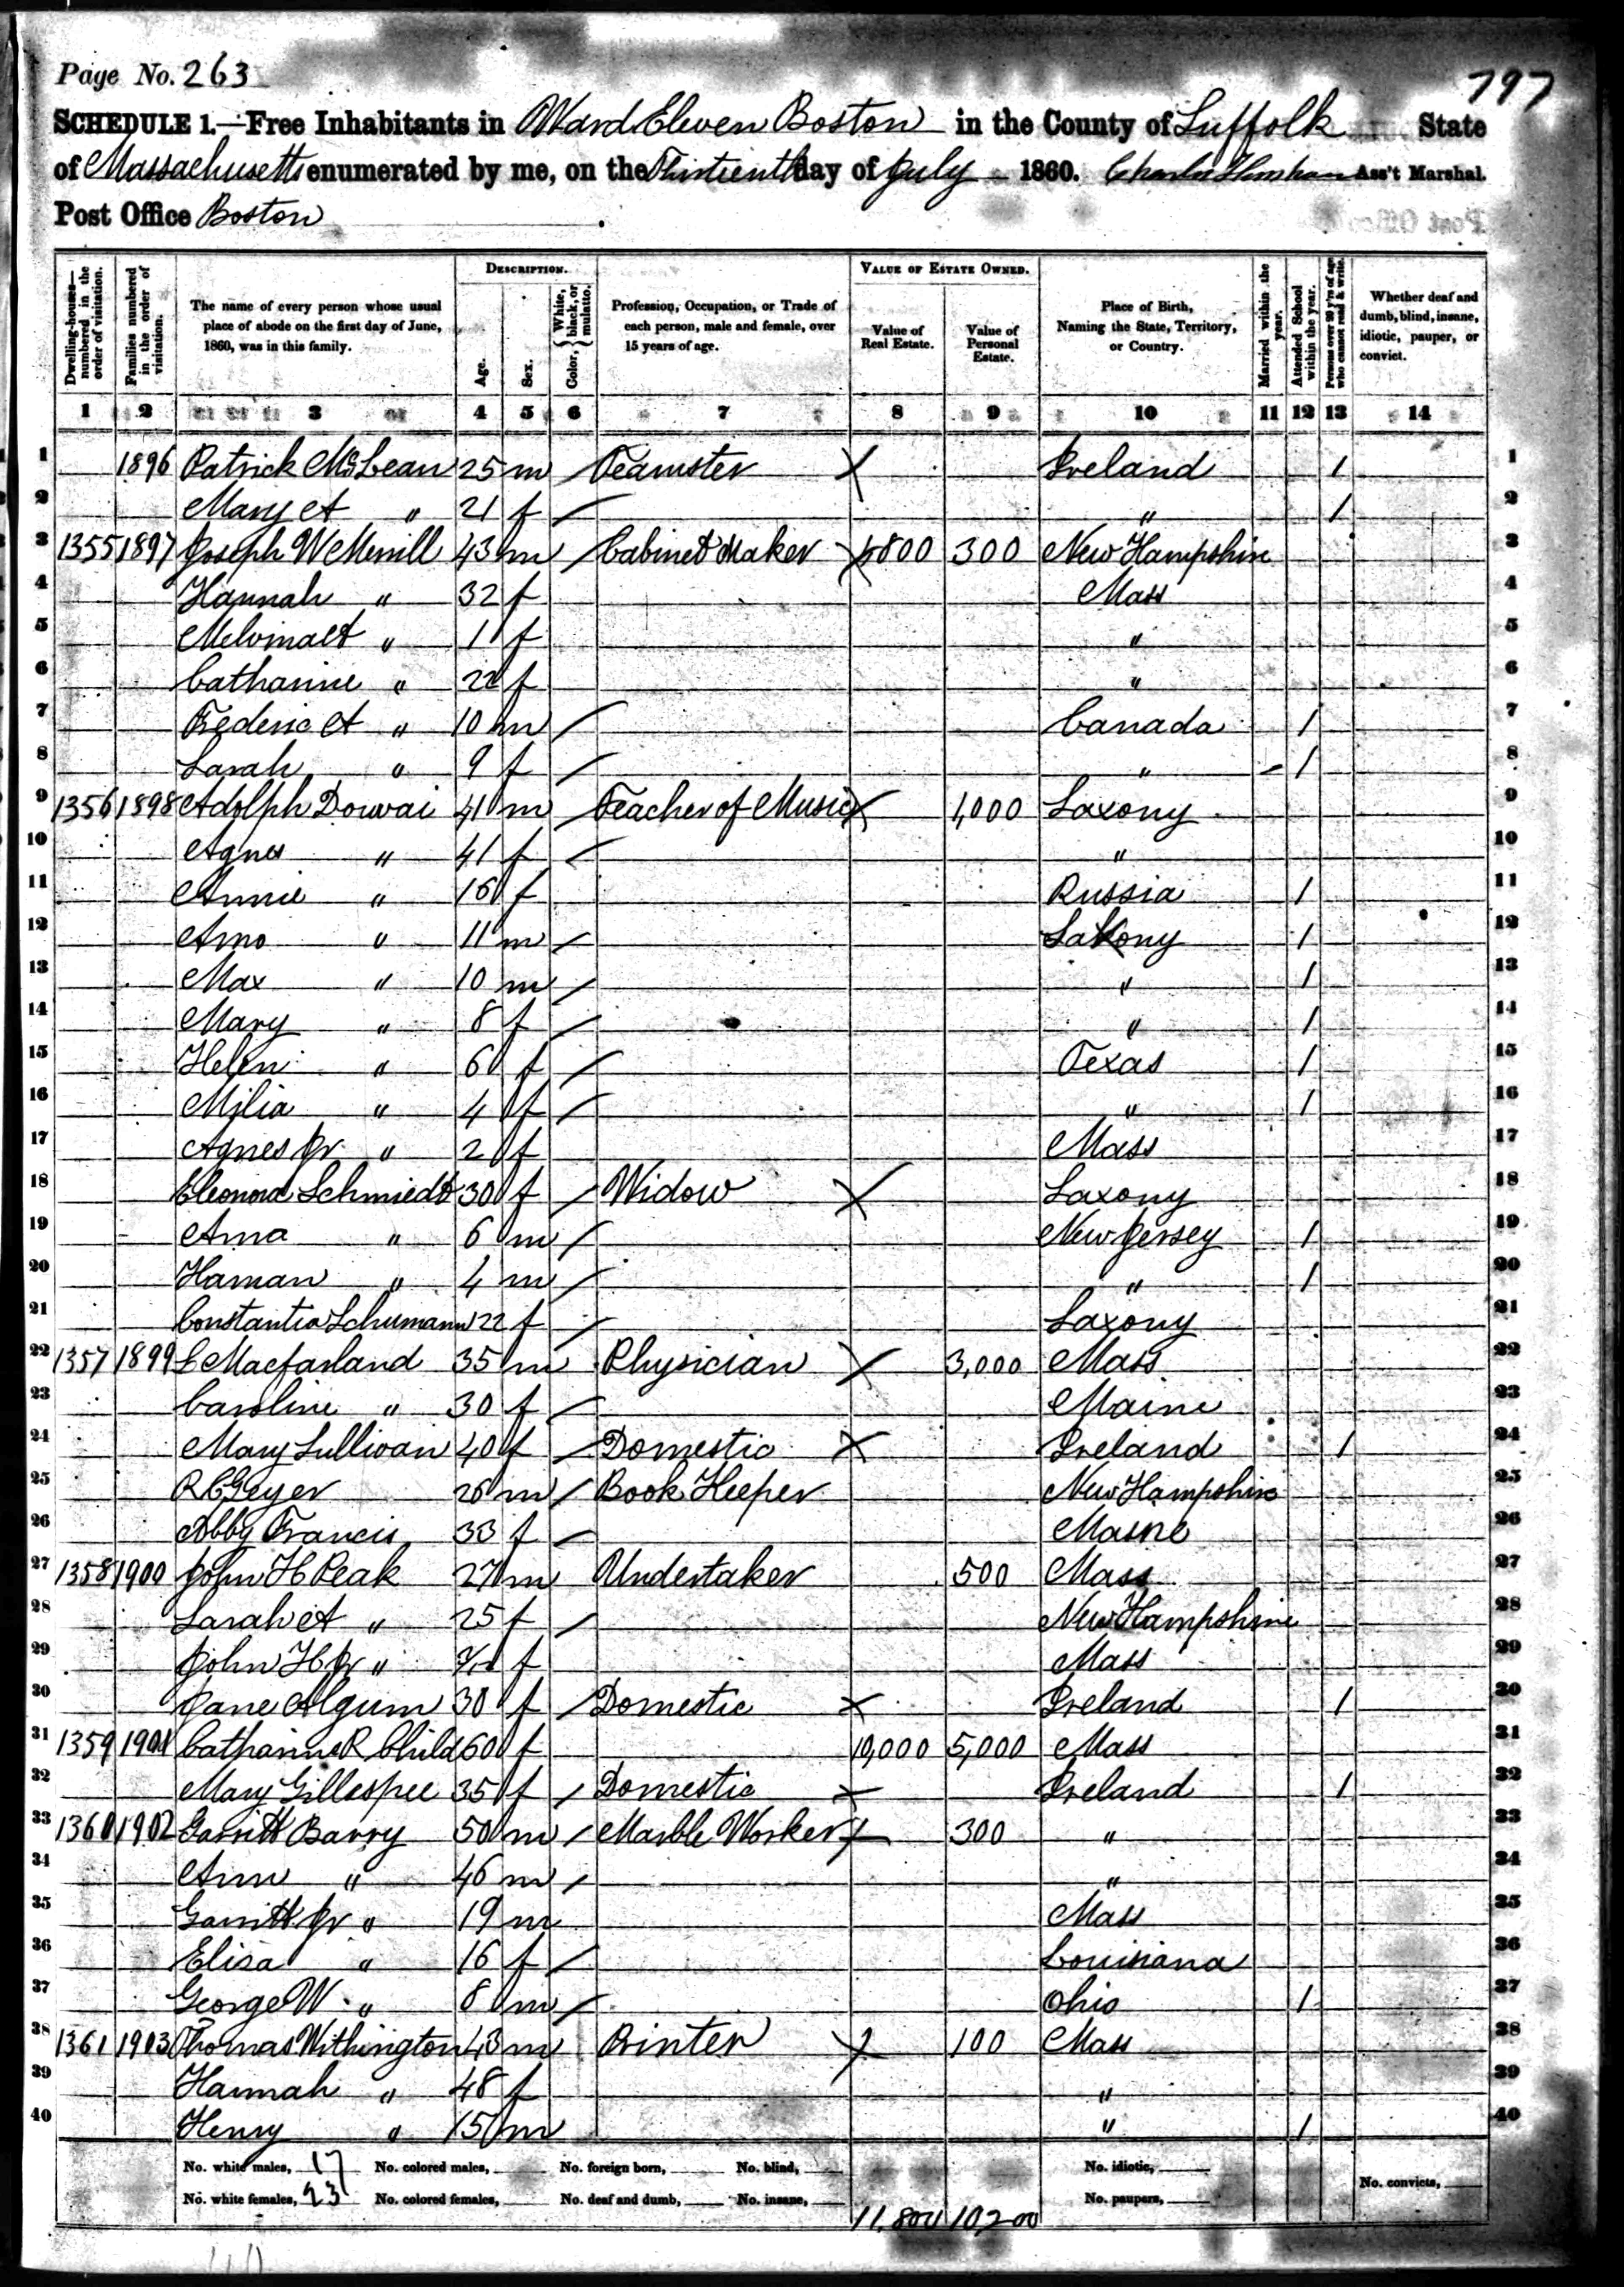 Page No. 263
797
SCHEDULE 1.—Free Inhabitants in Ward Eleven Boston in the County of Suffolk State
of Massachusetts enumerated by me, on the Thirtienth day of July 1860. Ass't Marshal.
Post Office Boston
Dwelling-houses—numbered in the order of visitation.
Families numbered in the order of visitation.
The name of every person whose usual place of abode on the first day of June, 1860, was in this family.
DESCRIPTION.
Age.
Sex.
Color, { White, black, or mulatto.
Profession, Occupation, or Trade of each person, male and female, over 15 years of age.
VALUE OF ESTATE OWNED.
Value of Real Estate.
Value of Personal Estate.
Place of Birth, Naming the State, Territory, or Country.
Married within the year.
Attended School within the year.
Persons over 20 y'rs of age who cannot read & write.
Whether deaf and dumb, blind, insane, idiotic, pauper, or convict.
1 2 3 4 5 6 7 8 9 10 11 12 13 14
1 1896 Patrick McLean 25 m / Teamster X Ireland 1 1
2 Mary A " 21 f / " 1 2
3 1355 1897 Joseph W Merrill 43 m / Cabinet Maker X 1800 300 New Hampshire 3
4 Hannah " 32 f Mass 4
5 Melvina A " 1 f " 5
6 Catharine " 22 f " 6
7 Frederic A " 10 m / Canada 1 7
8 Sarah " 9 f / " 1 8
9 1356 1898 Adolph Dowai 41 m / Teacher of Music X 1,000 Saxony 9
10 Agnes " 41 f / " 10
11 Annie " 16 f Russia 1 11
12 Arno " 11 m / Saxony 1 12
13 Max " 10 m / " 1 13
14 Mary " 8 f / " 1 14
15 Helen " 6 f / Texas 1 15
16 Milia " 4 f / " 1 16
17 Agnes Jr " 2 f Mass 17
18 Eleonora Schmiedt 30 f / Widow X Saxony 18
19 Arna " 6 m / New Jersey 1 19
20 Haman " 4 m / " 1 20
21 Constantia Schumann 22 f / Saxony 21
22 1357 1899 L Macfarland 35 m Physician X 3,000 Mass 22
23 Caroline " 30 f / Maine 23
24 Mary Sullivan 40 f / Domestic X Ireland 1 24
25 R C Geyer 26 m / Book Keeper New Hampshire 25
26 Abby Francis 33 f / Maine 26
27 1358 1900 John H Peak 27 m Undertaker 500 Mass 27
28 Sarah A " 25 f / New Hampshire 28
29 John H Jr " f Mass 29
30 Jane Algum 30 f / Domestic X Ireland 1 30
31 1359 1901 Catharine R Child 60 f 10,000 5,000 Mass 31
32 Mary Gillespee 35 f / Domestic X Ireland 1 32
33 1360 1902 Garritt Barry 50 m / Marble Worker X 300 " 33
34 Ann " 46 m / " 34
35 Garritt Jr " 19 m Mass 35
36 Eliza " 16 f / Louisiana 36
37 George W " 8 m / Ohio 1 37
38 1361 1903 Thomas Withington 43 m Printer X 100 Mass 38
39 Hannah " 48 f " 39
40 Henry " 15 m " 1 40
No. white males, 17 No. colored males, No. foreign born, No. blind, No. idiotic,
No. white females, 23 No. colored females, No. deaf and dumb, No. insane, No. paupers, No. convicts,
11,800 10,200